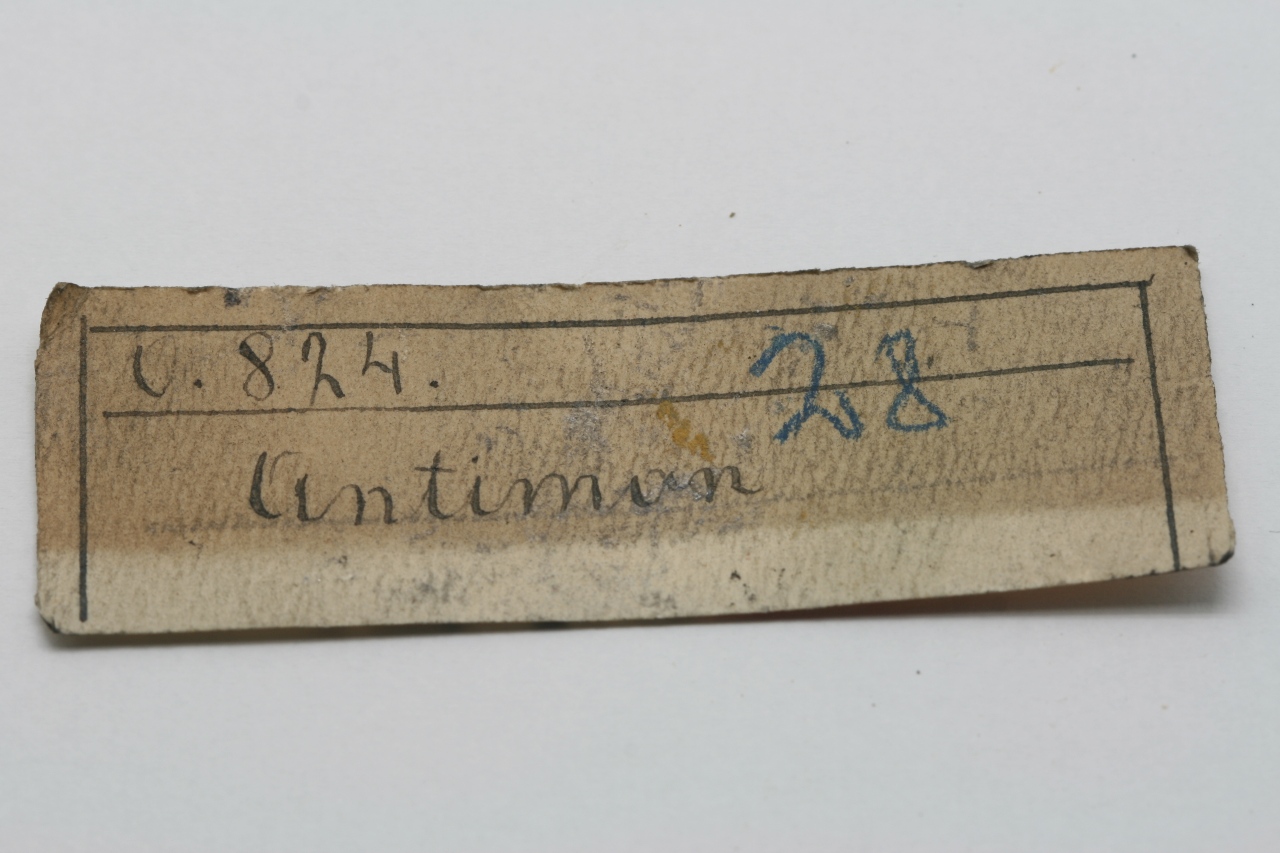 O. 824. 28
Antimon